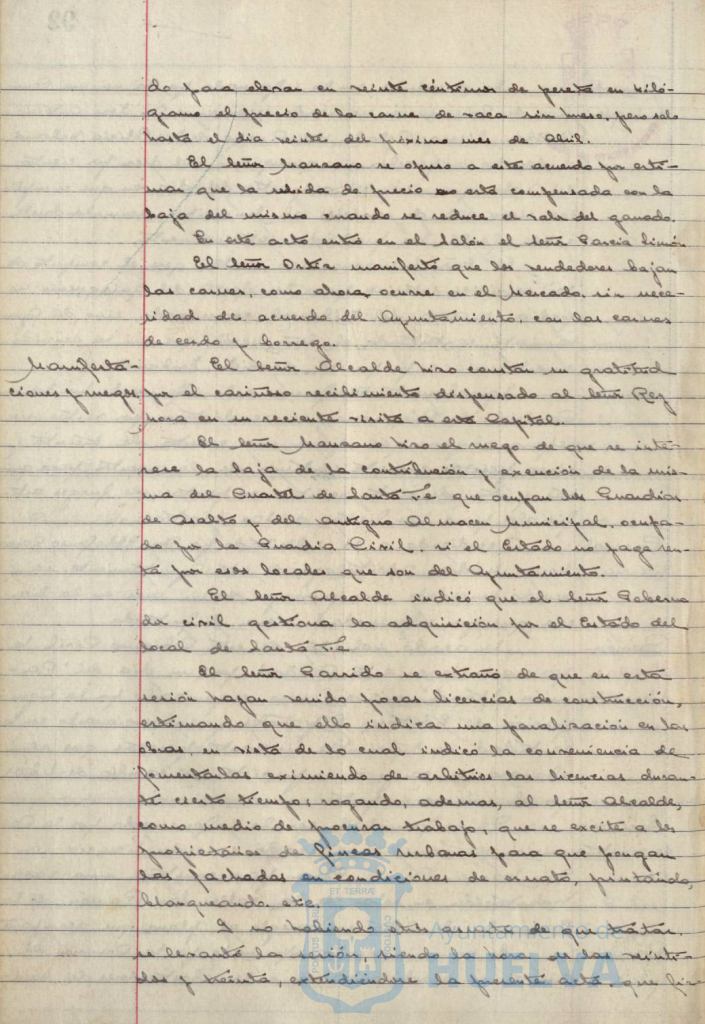 do para elevar en veinte céntimos de peseta en kiló-
gramo el precio de la carne de vaca sin hueso, pero solo
hasta el dia veinte del próximo mes de Abril.
El señor Manzano se opuso a este acuerdo por esti-
mar que la subida de precio no está compensada con la
baja del mismo cuando se reduce el valor del ganado.
En este acto entró en el Salón el señor García Limón
El señor Ortiz manifestó que los vendedores bajan
las carnes, como ahora ocurre en el Mercado, sin nece-
sidad de acuerdo del Ayuntamiento, con las carnes
de cerdo y borrego.
Manifesta-
ciones y ruegos.
El señor Alcalde hizo constar su gratitud
por el cariñoso recibimiento dispensado al señor Rey
Mora en su reciente visita a esta Capital.
El señor Manzano hizo el ruego de que se inte-
rese la baja de la contribución y exención de la mis-
ma del Cuartel de Santa Fé que ocupan los Guardias
de Asalto y del antiguo Almacen Municipal, ocupa-
do por la Guardia Civil, si el Estado no paga ren-
ta por esos locales que son del Ayuntamiento.
El señor Alcalde indicó que el señor Goberna
dor civil gestiona la adquisición por el Estado del
local de Santa Fé
El señor Garrido se extrañó de que en esta
sesión hayan venido pocas licencias de construcción,
estimando que ello indica una paralización en las
obras, en vista de lo cual indicó la conveniencia de
fomentarlas eximiendo de arbitrios las licencias duran-
te cierto tiempo; rogando, ademas, al señor Alcalde,
como medio de procurar trabajo, que se excite a los
propietarios de fincas urbanas para que pongan
las fachadas en condiciones de ornato, pintando,
blanqueando, etc.
Y no habiendo otros asuntos de que tratar,
se levantó la sesión, siendo la hora de las veinti-
dos y treinta, extendiéndose la presente acta, que fir-
Ayuntamiento de
HUELVA